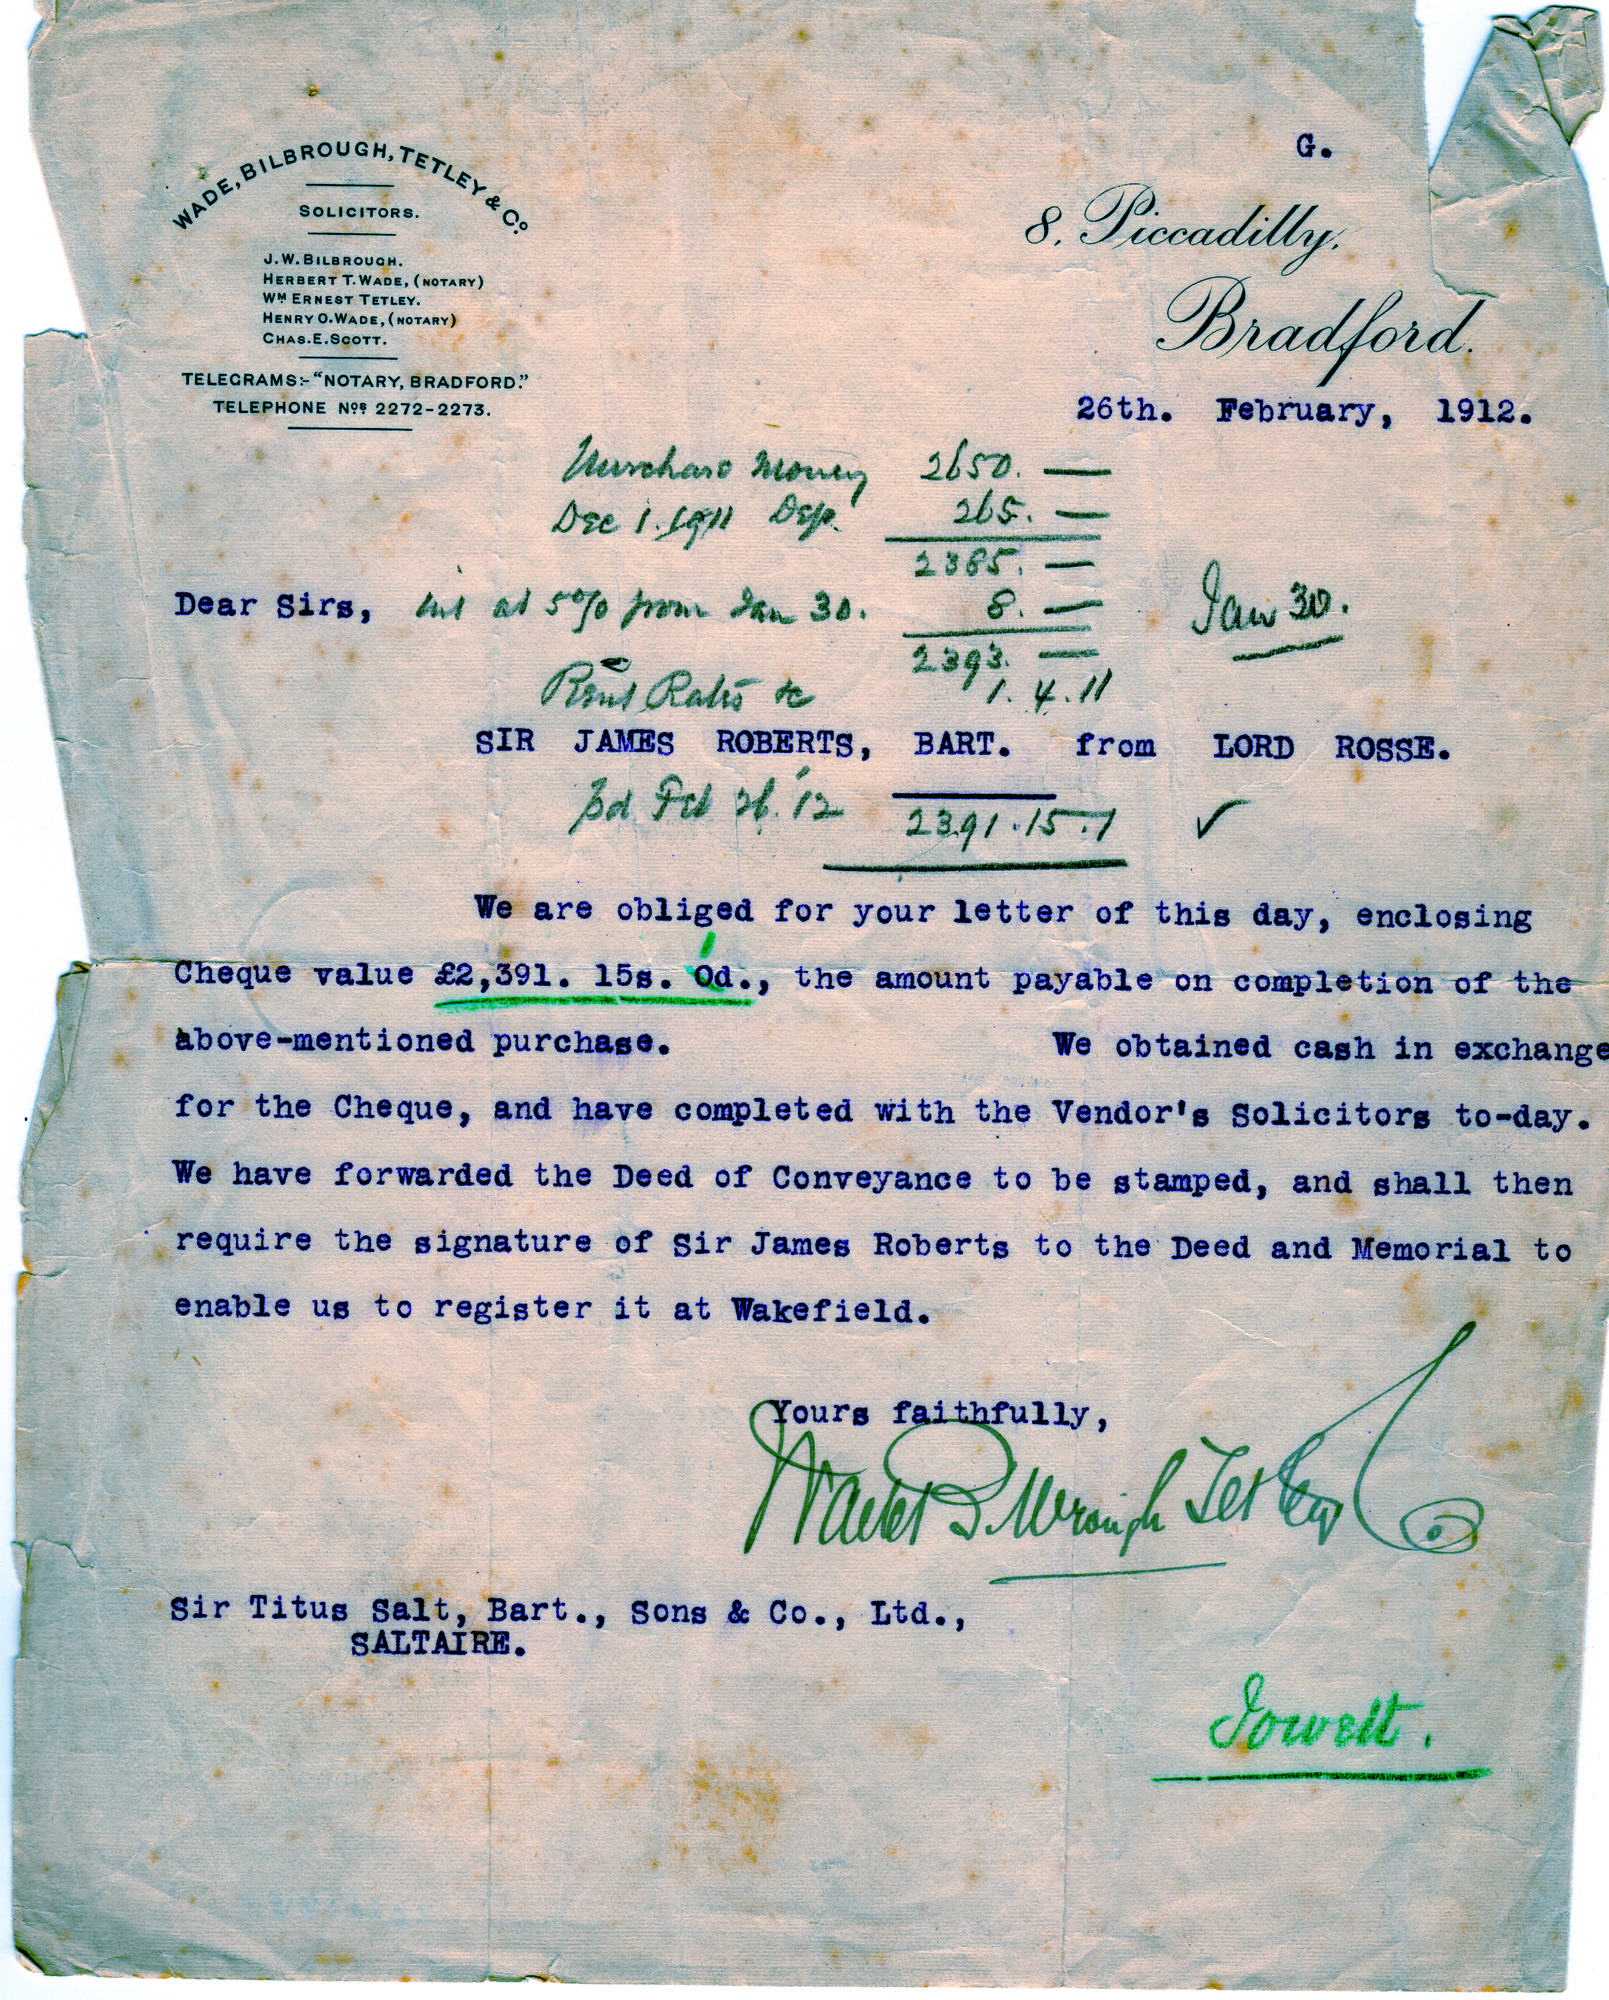 G.
WADE, BILBROUGH, TETLEY & Co.
SOLICITORS.
J. W. BILBROUGH.
HERBERT T. WADE, (NOTARY)
WM ERNEST TETLEY.
HENRY O. WADE, (NOTARY)
CHAS. E. SCOTT.
TELEGRAMS:- "NOTARY, BRADFORD."
TELEPHONE Nos 2272-2273.
8, Piccadilly,
Bradford.
26th. February, 1912.
Purchase Money 2650. —
Dec 1. 1911 Dep. 265. —
2385. —
Dear Sirs, Int at 5% from Jan 30. 8. — Jan 30.
2393. —
Rent Rates &c 1. 4. 11
SIR JAMES ROBERTS, BART. from LORD ROSSE.
Pd Feb 26. '12 2391. 15. 1 ✓
We are obliged for your letter of this day, enclosing
Cheque value £2,391. 15s. 0d., the amount payable on completion of the
above-mentioned purchase. We obtained cash in exchange
for the Cheque, and have completed with the Vendor's Solicitors to-day.
We have forwarded the Deed of Conveyance to be stamped, and shall then
require the signature of Sir James Roberts to the Deed and Memorial to
enable us to register it at Wakefield.
Yours faithfully,
Wade Bilbrough Tetley & Co
Sir Titus Salt, Bart., Sons & Co., Ltd.,
SALTAIRE.
Jowett.